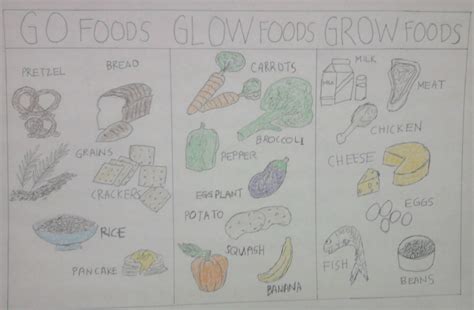 GO FOODS
PRETZEL
BREAD
GRAINS
CRACKERS
RICE
PANCAKE
GLOW FOODS
CARROTS
BROCOLLI
PEPPER
EGGPLANT
POTATO
SQUASH
BANANA
GROW FOODS
MILK
MEAT
CHICKEN
CHEESE
EGGS
FISH
BEANS